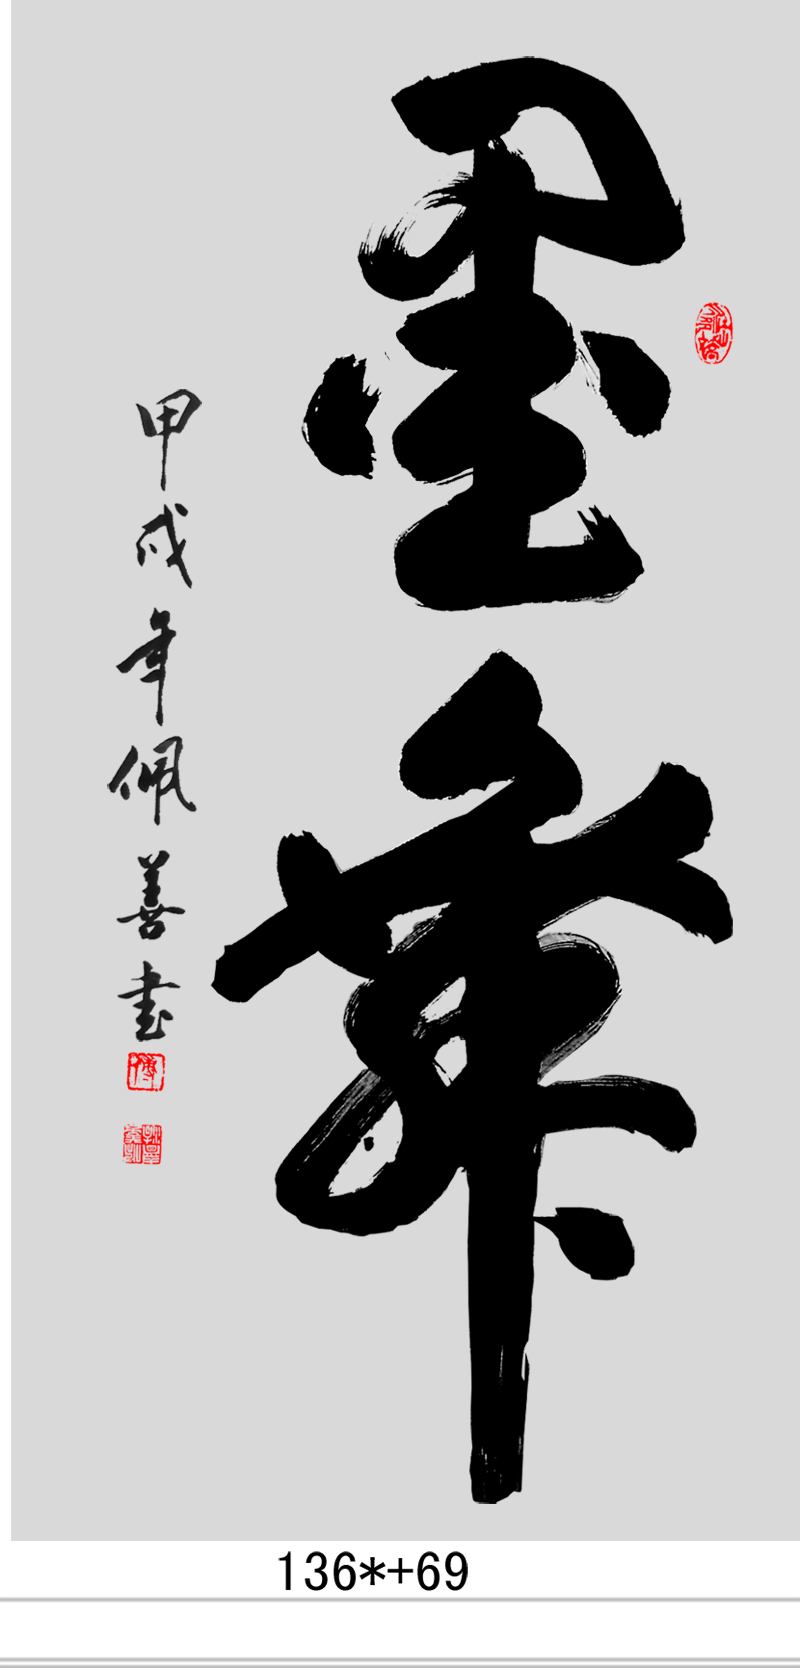 墨舞
甲戌年佩善書
136*+69